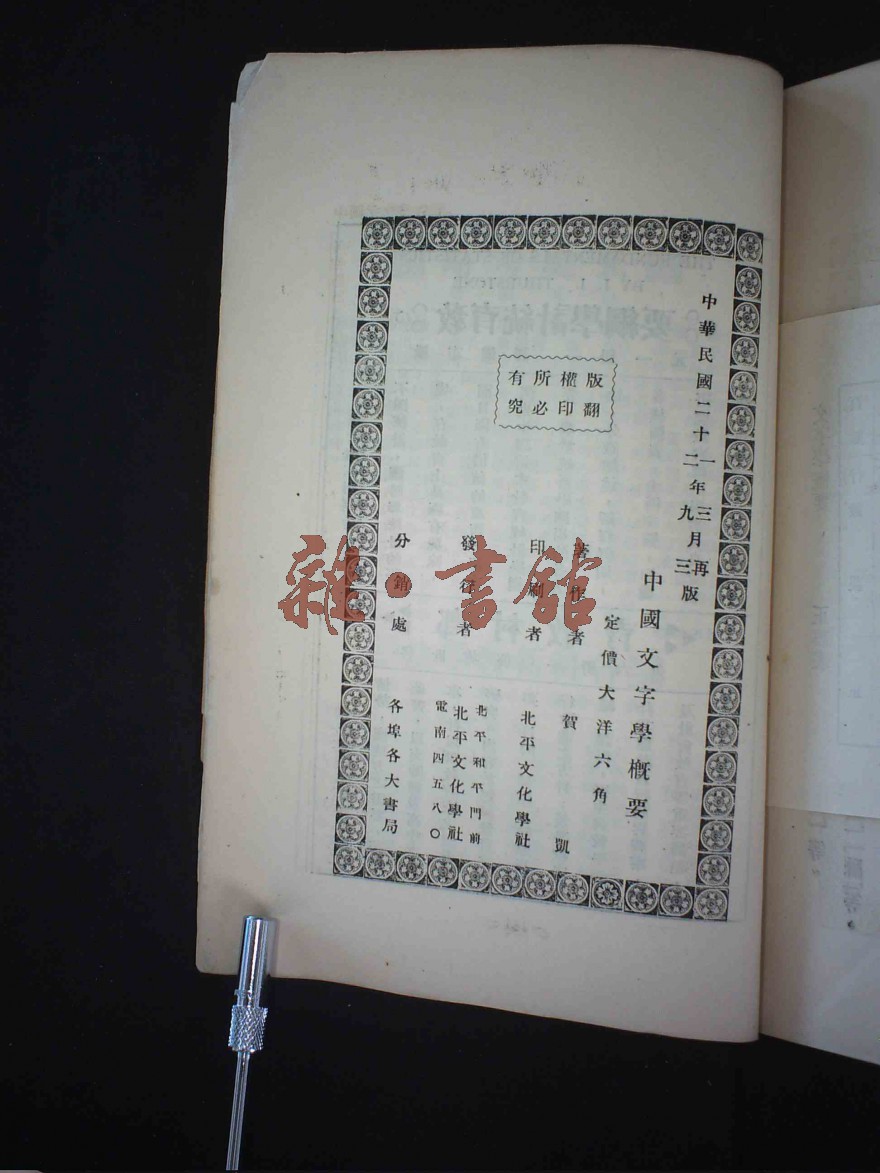 中華民國二十一年三月再版
二十二年九月三版
中國文字學概要
定價大洋六角
版權所有
翻印必究
著作者 賀凱
印刷者 北平文化學社
發行者 北平文化學社
北平和平門前
電南四五八〇
分銷處 各埠各大書局
雜·書館